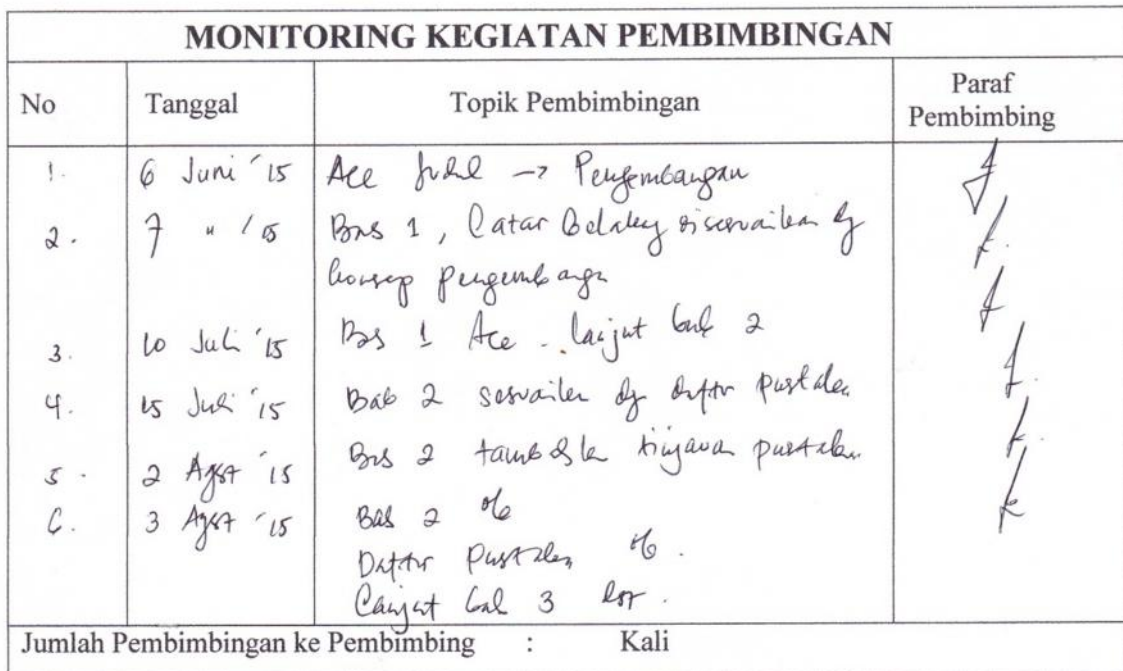 MONITORING KEGIATAN PEMBIMBINGAN
No Tanggal Topik Pembimbingan Paraf Pembimbing
1. 6 Juni '15 Acc Judul -> Pengembangan
2. 7 " '15 Bab 1, Latar Belakang disesuaikan dg
konsep pengembangan
3. 10 Juli '15 Bab 1 Acc - lanjut bab 2
4. 15 Juli '15 Bab 2 sesuaikan dg daftar pustaka
5. 2 Agst '15 Bab 2 tambahkan tinjauan pustaka
6. 3 Agst '15 Bab 2 ok
Daftar Pustaka ok.
Lanjut bab 3
Jumlah Pembimbingan ke Pembimbing : Kali